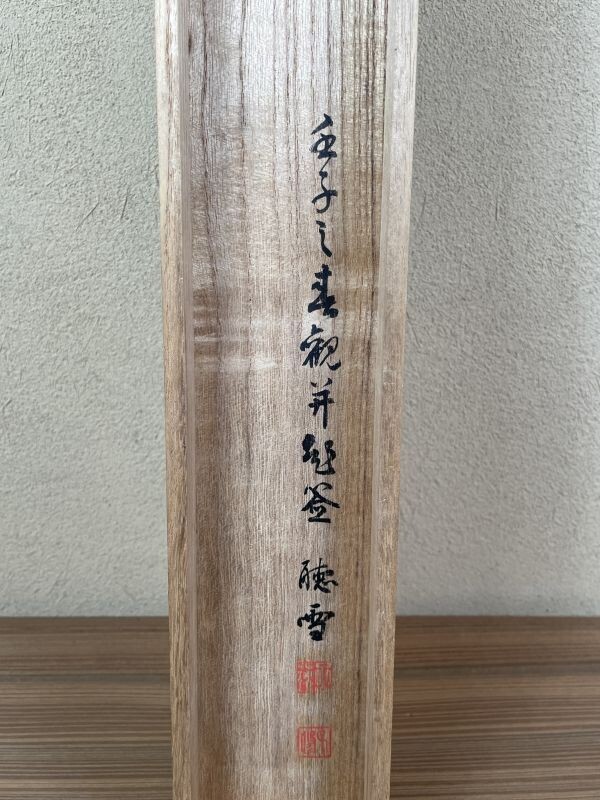 壬子之春観并題簽 聴雪